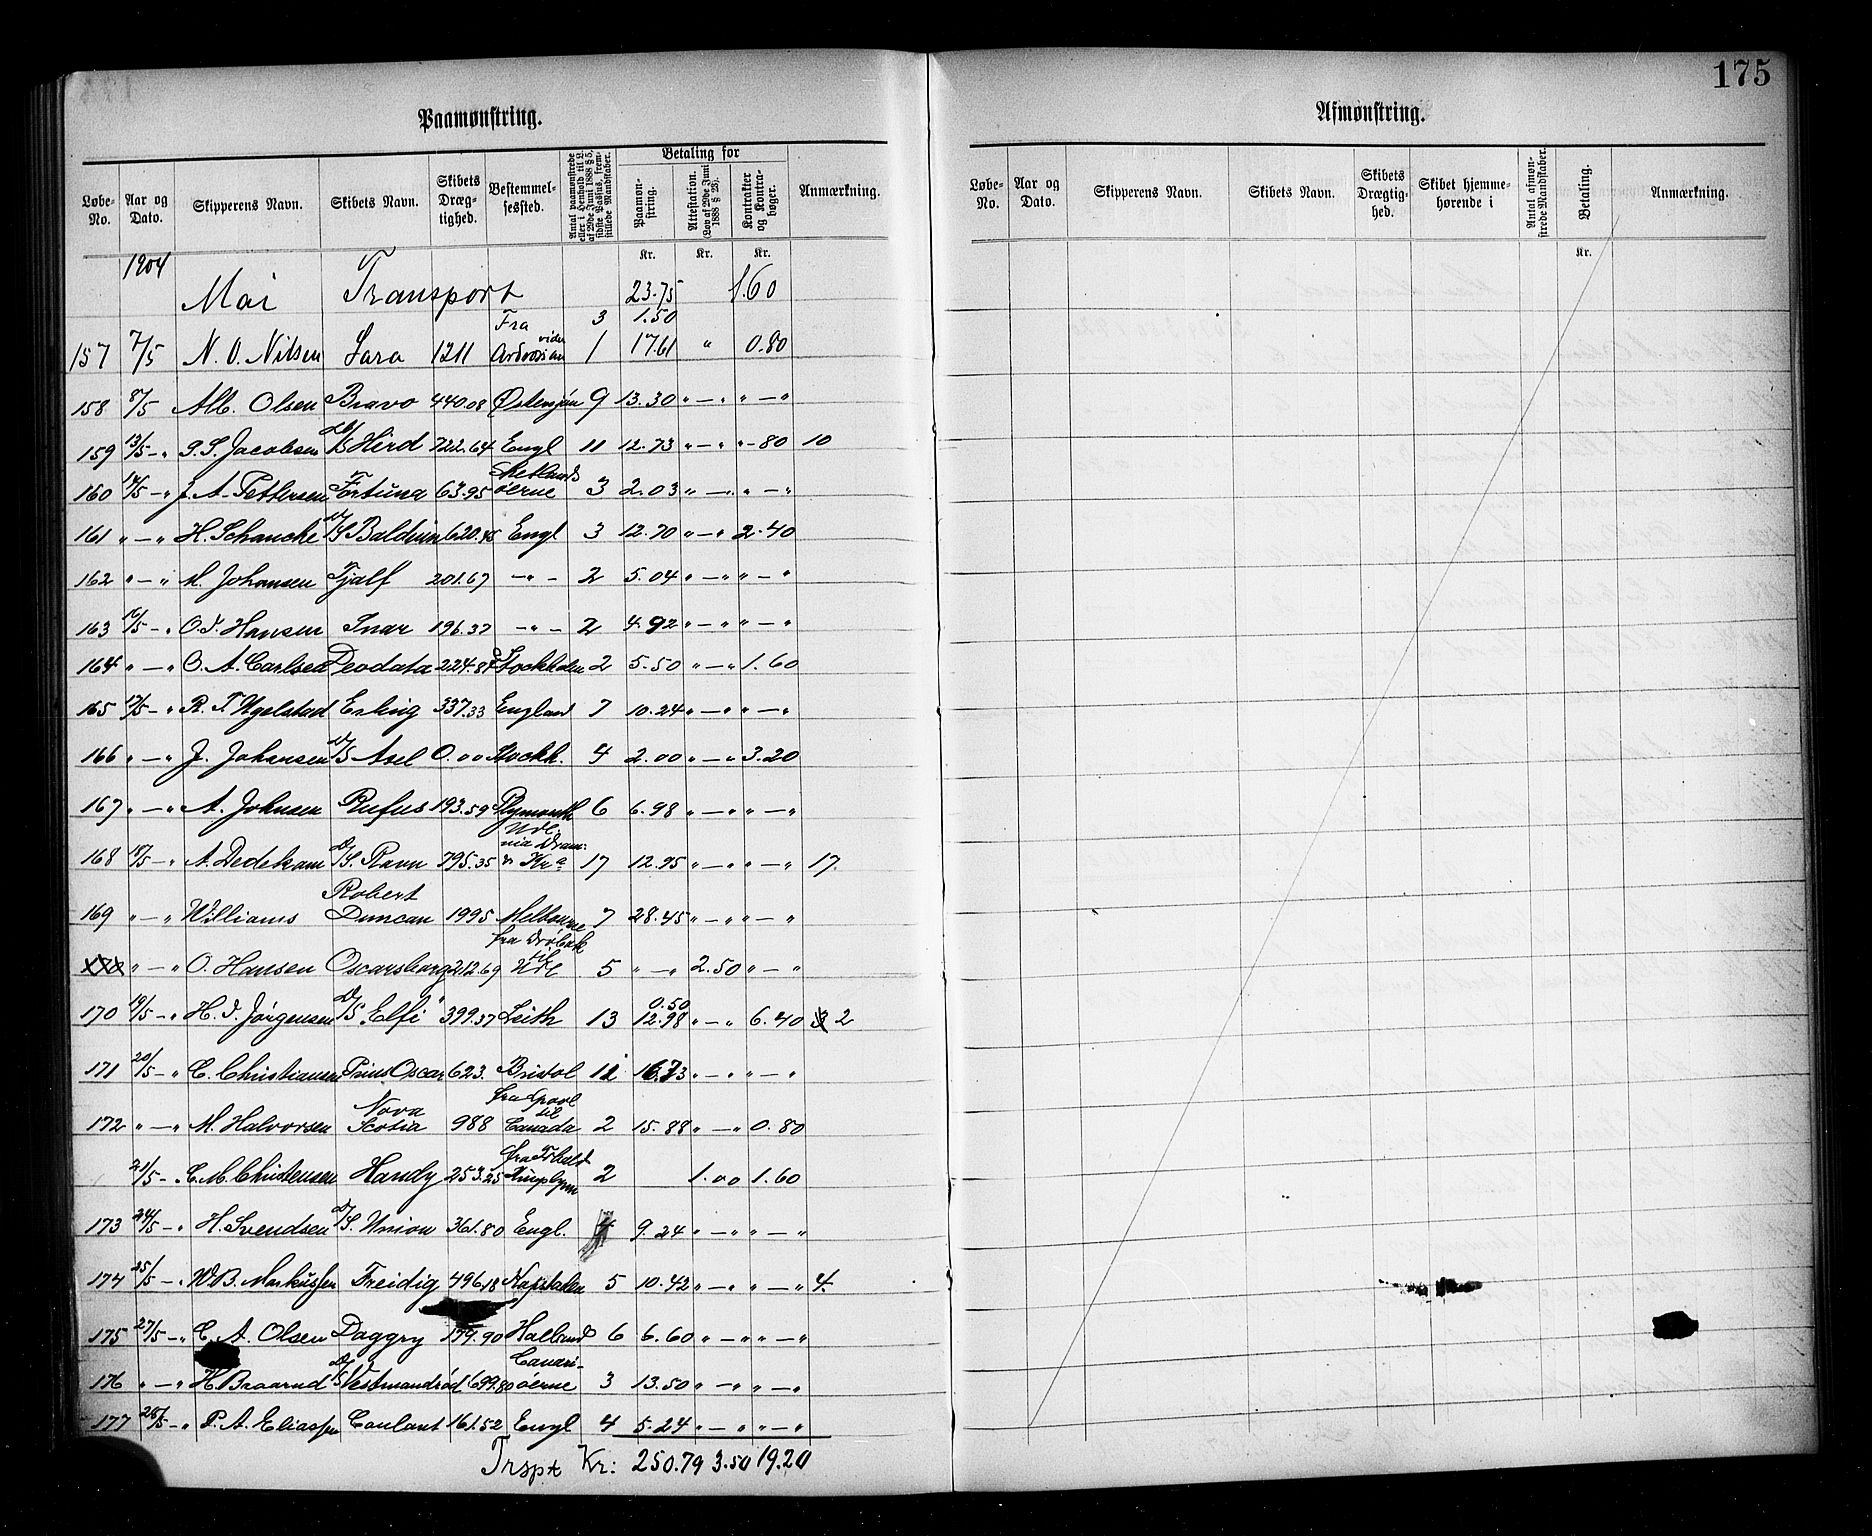 175
Paamønstring.
Løbe-No. Aar og Dato. Skipperens Navn. Skibets Navn. Skibets Dræg-tighed. Bestemmel-sessted. Antal paamønstrede eller i Henhold til L. af 29de Juni 1888 § 5, sidste Passus, frem-stillede Mandskaber. Betaling for Paamøn-string. Attestation. (Lov af 29de Juni 1888 § 28). Kontrakter og Kontra-bøger. Anmærkning.
Kr. Kr. Kr.
1904 Mai Transport 23.75 1.60
3 1.50
157 7/5 N. O. Nilsen Sara 1211 Fra 1 17.61 " 0.80
158 8/5 Alb. Olsen Bravo 440.08 Østersjøn 9 13.30 " — " " — "
159 13/5 - " S. Jacobsen D/S Hird 722.64 Engl 11 12.73 " — " " - 80 10
160 14/5 - " J. A. Pettersen Fortuna 63.95 Shetlands øerne 3 2.03 " — " " — "
161 " — " H. Schanche D/S Balduin 620.45 Engl 3 12.70 " — " 2.40
162 " — " M. Johansen Tjalf 201.67 — " — 2 5.04 " — " " — "
163 16/5 - " O. J. Hansen Snar 196.37 — " — 2 4.92 " — " " — "
164 " — " O. A. Carlsen Deodata 224.84 Stockholm 2 5.50 " — " 1.60
165 17/5 - " R. T. Ugelstad Erling 337.33 England 7 10.24 " — " " — "
166 " — " J. Johansen D/S Axel 0.00 Stockh. 4 2.00 " — " 3.20
167 " — " A. Johnsen Rufus 193.59 Plymouth 6 6.98 " — " " — "
168 18/5 - " A. Dedekam D/S. Ravn 795.35 Udl. via Dram: & Kra 17 12.95 " — " " — " 17.
169 " — " Williams Robert Duncan 1995 Melbourne 7 28.45 " — " " — "
" — " O. Hansen Oscarsborg 212.69 fra Drøbak til Udl 5 " — " 2.50 " — "
170 19/5 - " H. J. Jørgensen D/S "Elfi" 399.37 Leith 13 0.50 12.98 " — " 6.40 2
171 20/5 - " C. Christiansen Prins Oscar 623. Bristol " — " " — "
172 " — " M. Halvorsen Nova Scotia 988 fra Lpool til Canada 2 15.88 " — " 0.80
21/5 - " C. M. Christensen Handy 253.25 2 1.00 1.60
173 24/5 - " H. Svendsen D/S. Union 361.80 Engl. 4 9.24 " — " " — "
174 25/5 - " W B. Markussen Freidig 496.18 Kapstaden 5 10.42 " — " " — " 4.
175 27/5 - " C. A. Olsen Daggry 179.90 Holland 6 6.60 " — " " — "
176 " — " H. Braarud D/S Vestmandrød 699.80 Canari-øerne 3 13.50 " — " " — "
177 28/5 - " P. A. Eliassen Coulant 161.52 Engl 4 5.24 " — " " — "
Trspt Kr: 250.79 3.50 19.20
Afmønstring.
Løbe-No. Aar og Dato. Skipperens Navn. Skibets Navn. Skibets Drægtig-hed. Skibet hjemme-hørende i Antal afmøn-strede Mandskaber. Betaling. Anmærkning.
Kr.